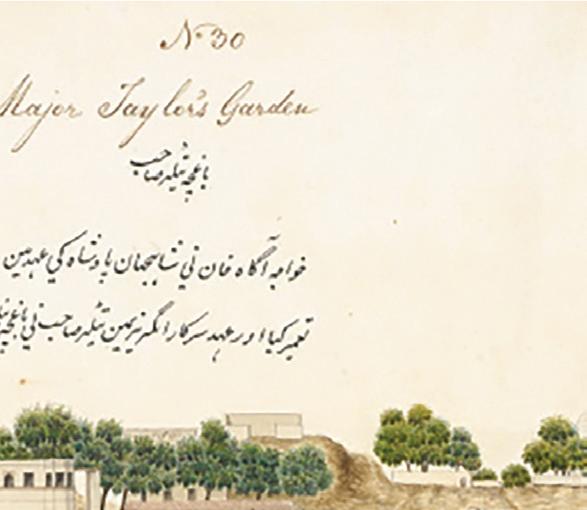 No 30
Major Taylor's Garden
باغچه تیلر صاحب
خواجه آگاه خان نی شاہجہان بادشاہ کی عہد مین
تعمیر کیا اور عہد سرکار انگریزیمین تیلر صاحب نی باغچہ